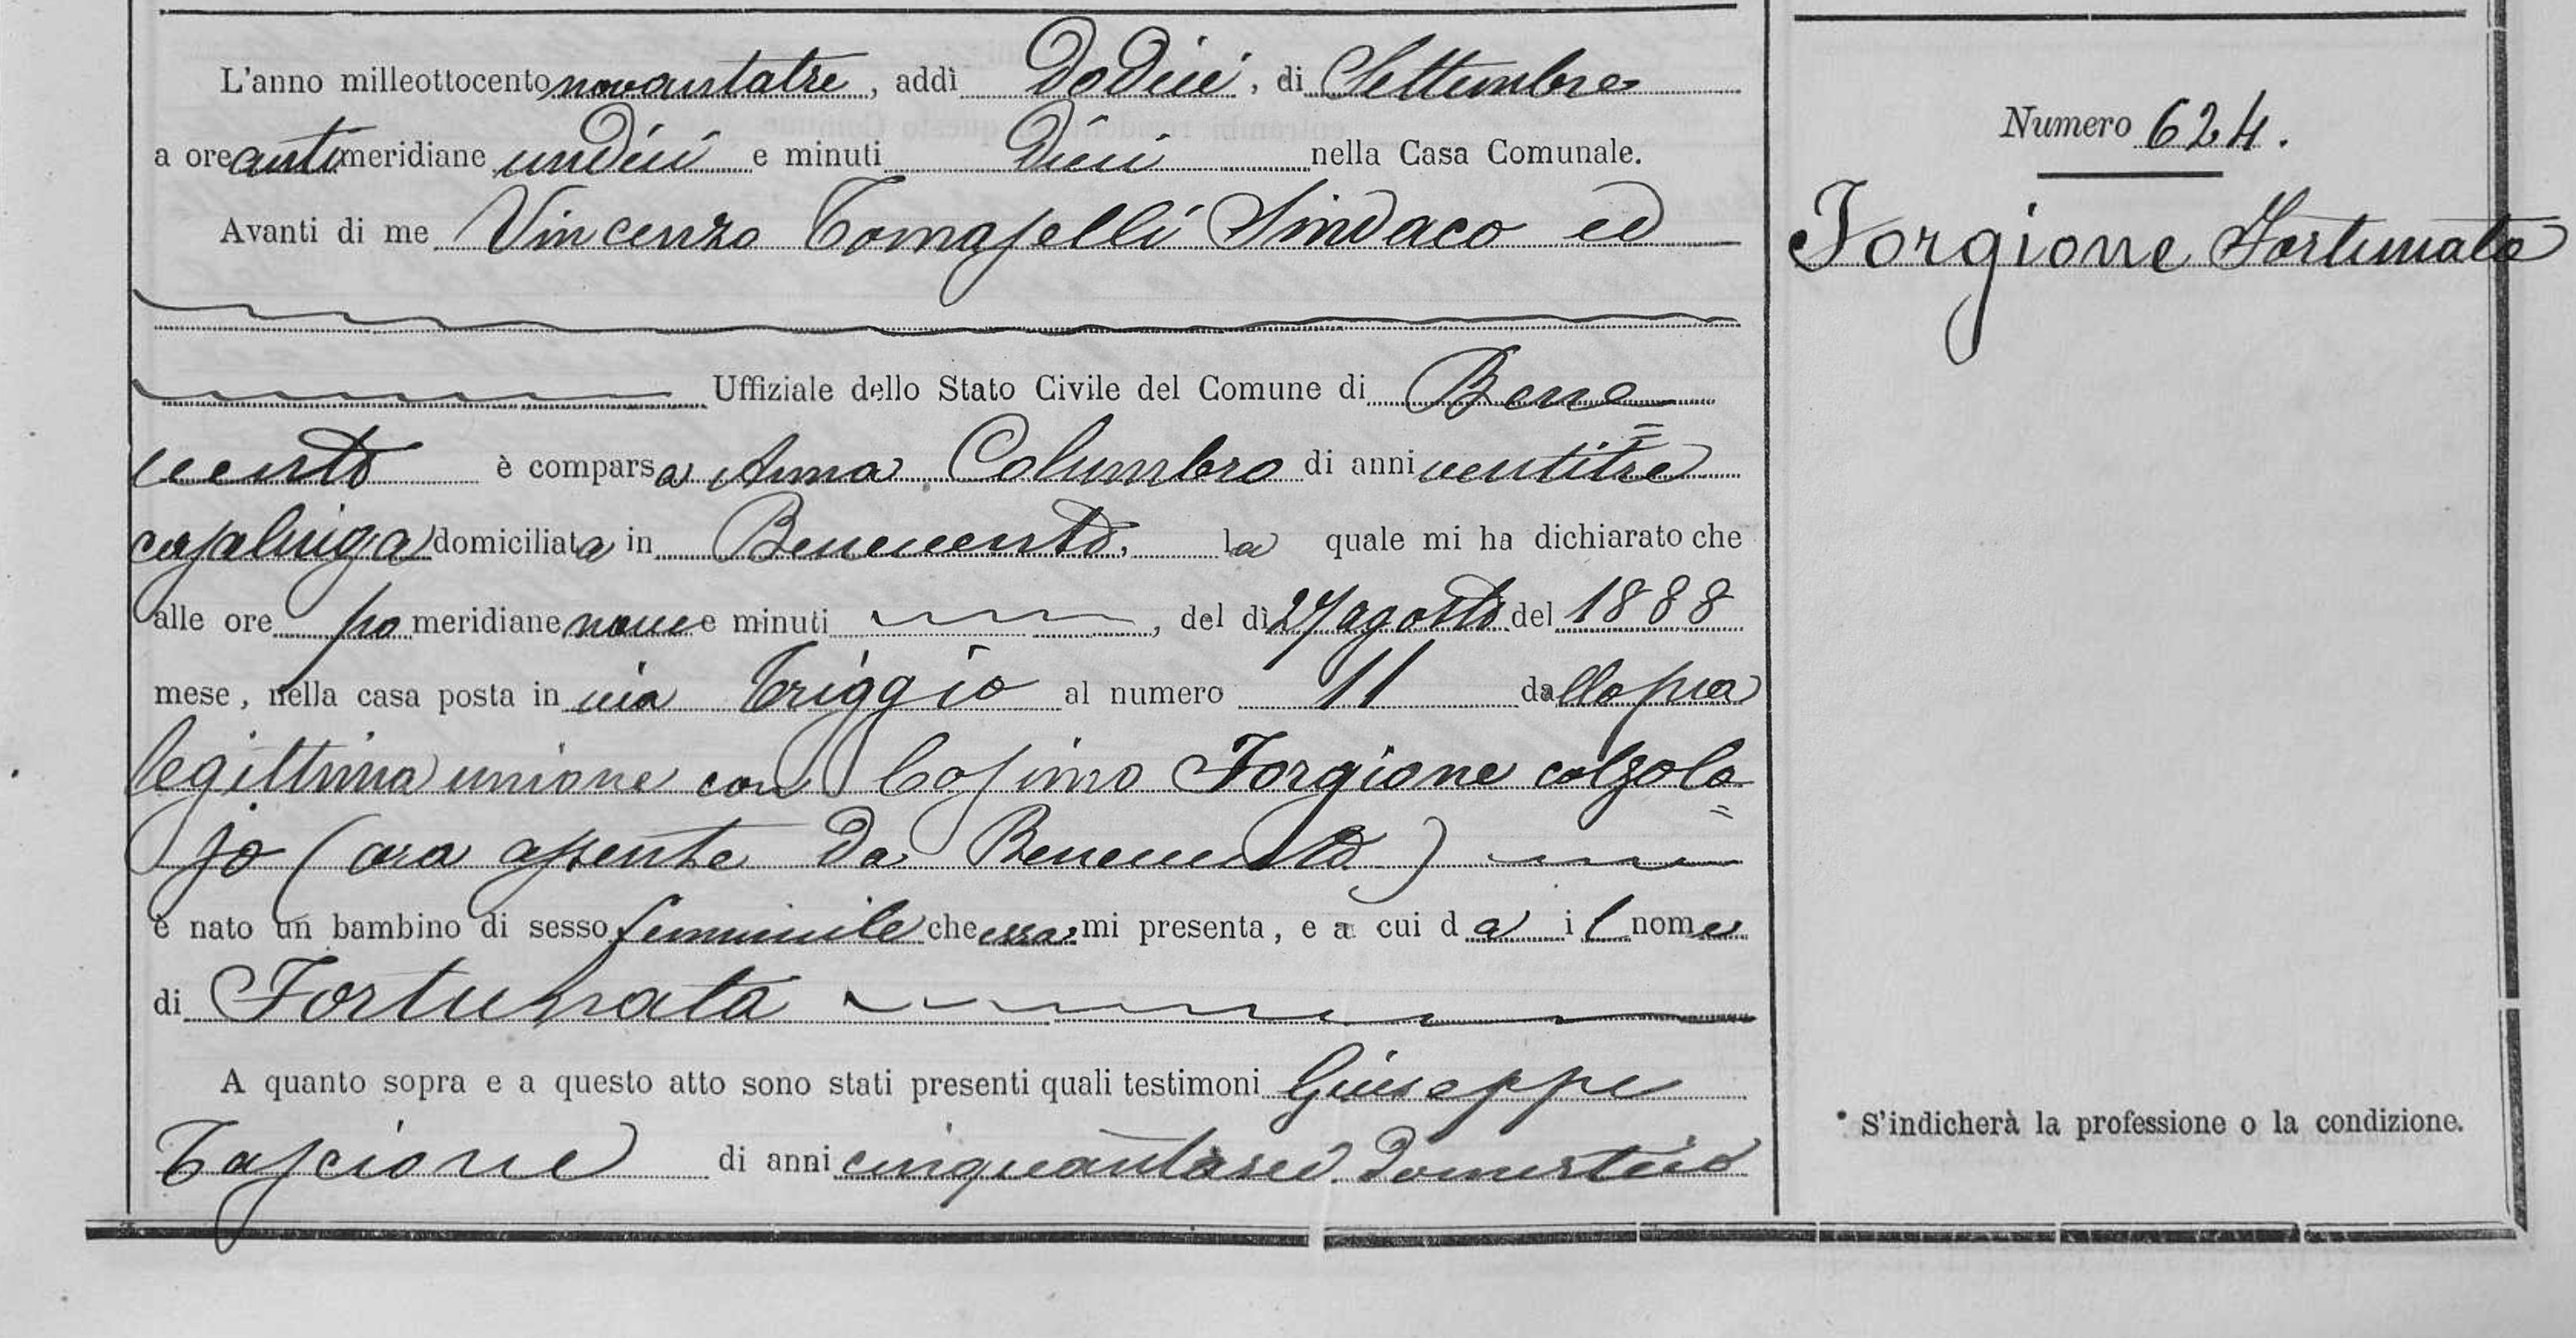 L'anno milleottocento novantatre, addì Dodici, di Settembre
a ore antimeridiane undici e minuti dieci nella Casa Comunale.
Avanti di me Vincenzo Tomaselli Sindaco ed
Uffiziale dello Stato Civile del Comune di Bene=
vento è comparsa Anna Columbro di anni ventitre
casalinga domiciliata in Benevento, la quale mi ha dichiarato che
alle ore pomeridiane nove e minuti , del dì 27 agosto del 1888
mese, nella casa posta in via Triggio al numero 11 dalla sua
legittima unione con Cosimo Forgione calzola=
jo (ora assente da Benevento)
è nato un bambino di sesso femminile che essa mi presenta, e a cui da il nome
di Fortunata
A quanto sopra e a questo atto sono stati presenti quali testimoni Giuseppe
Tascione di anni cinquantasei domestico
Numero 624.
Forgione Fortunata
* S'indicherà la professione o la condizione.